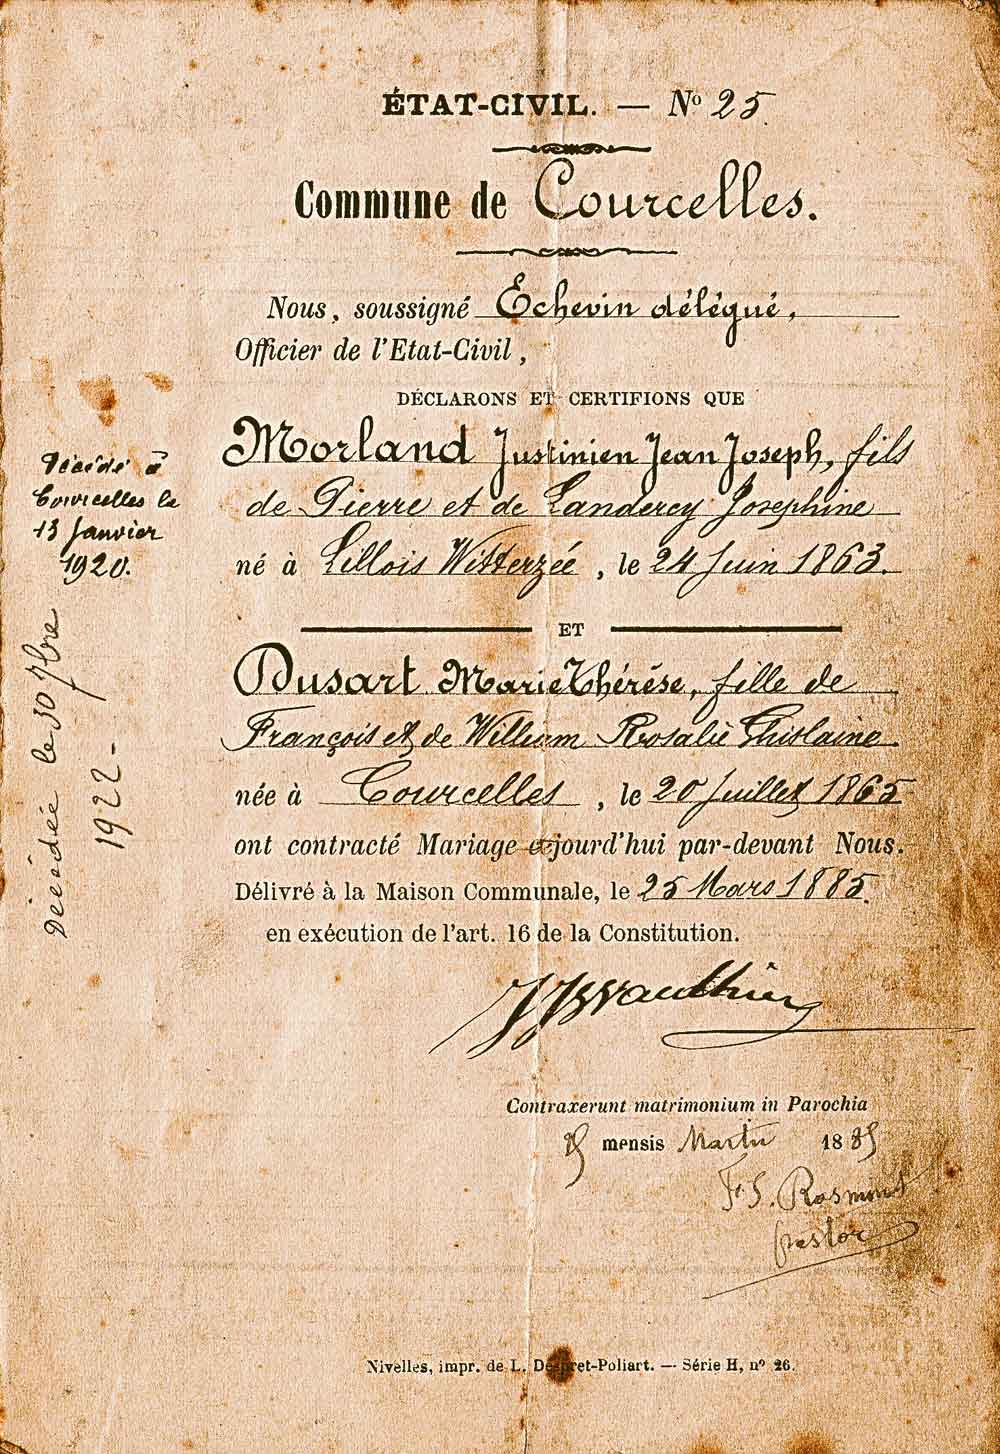 ÉTAT-CIVIL. — Nº 25.
Commune de Courcelles.
Nous, soussigné Echevin délégué,
Officier de l'Etat-Civil,
DÉCLARONS ET CERTIFIONS QUE
Morland Justinien Jean Joseph, fils
de Pierre et de Landercy Josephine
né à Lillois Witterzée, le 24 Juin 1863.
ET
Dusart Marie Thérèse, fille de
François et de William Rosalie Ghislaine
née à Courcelles, le 20 Juillet 1865
ont contracté Mariage jourd'hui par-devant Nous.
Délivré à la Maison Communale, le 25 Mars 1885.
en exécution de l'art. 16 de la Constitution.
Contraxerunt matrimonium in Parochia
25 mensis Martii 1885
F. S. Rosmont
pastor
Nivelles, impr. de L. Despret-Poliart. — Série H, nº 26.
Décédé à
Courcelles le
13 Janvier
1920.
Décédée le 30 7bre
1922 -